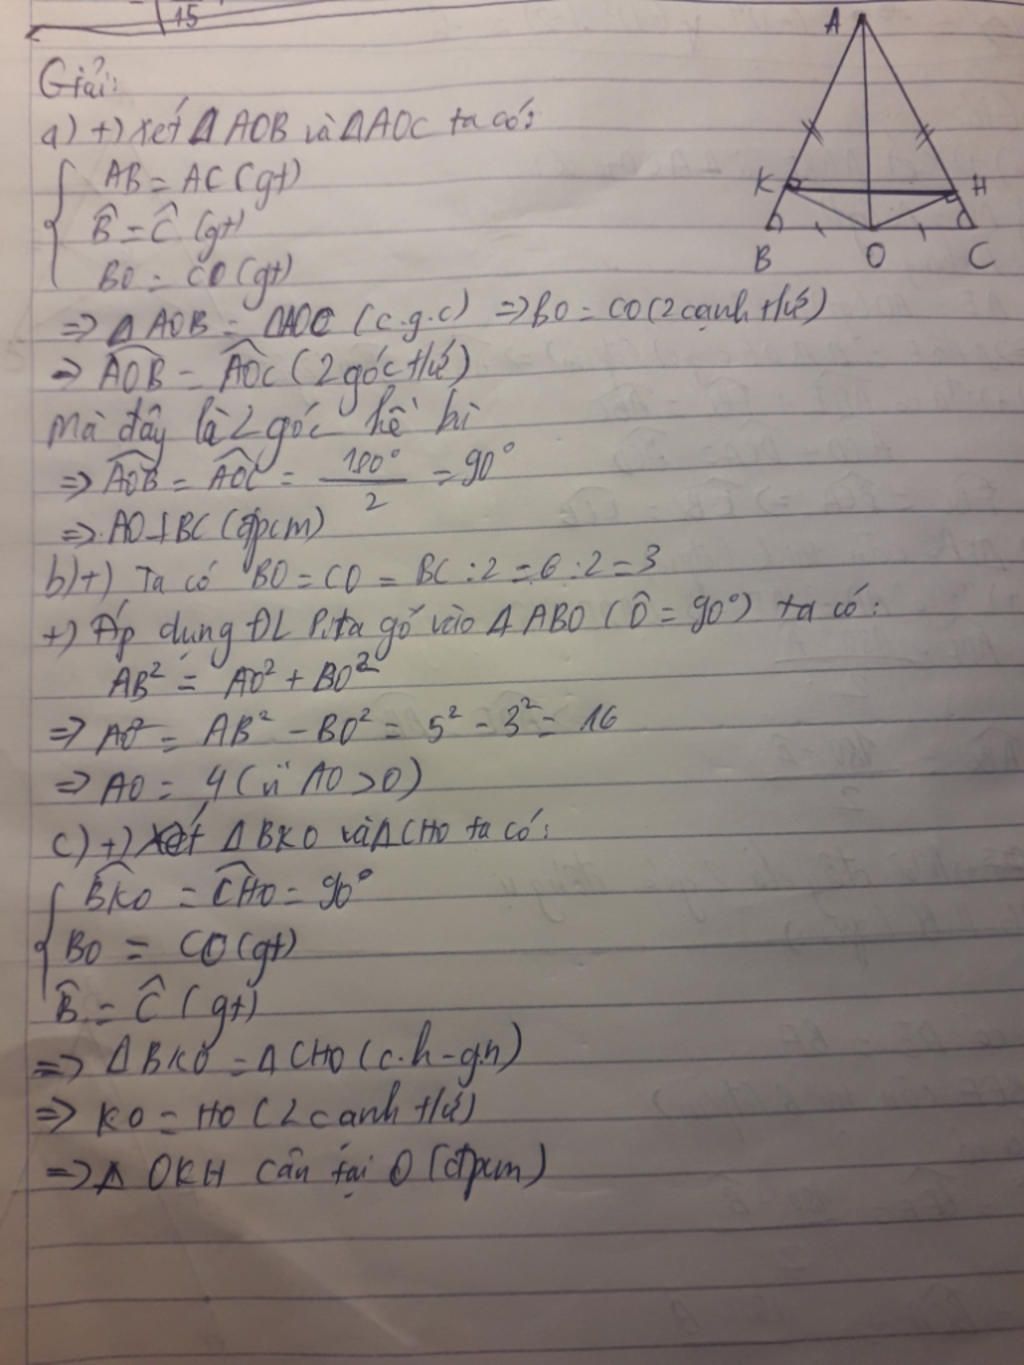 15
Giải:
a) +) Xét Δ AOB và Δ AOC ta có:
AB = AC (gt)
B̂ = Ĉ (gt)
BO = CO (gt)
=> Δ AOB = ΔAOC (c.g.c) => BO = CO (2 cạnh t/ứ)
=> AOB = AOC (2 góc t/ứ)
Mà đây là 2 góc kề bù
=> AOB = AOC = 180°/2 = 90°
=> AO ⊥ BC (đpcm)
b) +) Ta có BO = CO = BC : 2 = 6 : 2 = 3
+) Áp dụng ĐL Pitago vào Δ ABO (Ô = 90°) ta có:
AB² = AO² + BO²
=> AO² = AB² - BO² = 5² - 3² = 16
=> AO = 4 (vì AO > 0)
c) +) Xét Δ BKO và Δ CHO ta có:
BKO = CHO = 90°
BO = CO (gt)
B̂ = Ĉ (gt)
=> Δ BKO = Δ CHO (c.h - g.n)
=> KO = HO (2 cạnh t/ứ)
=> Δ OKH cân tại O (đpcm)
A
K H
B O C